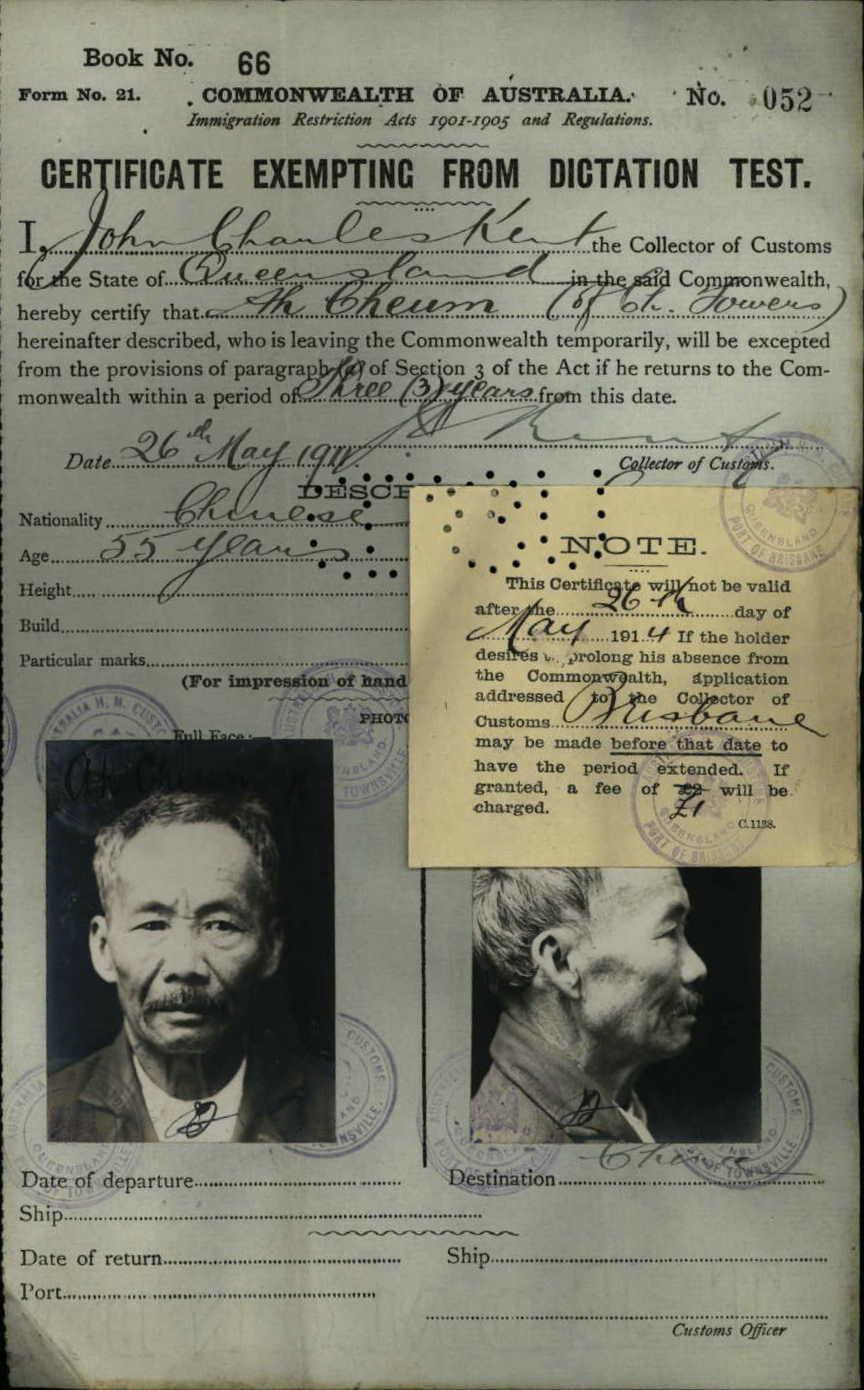 Book No. 66
Form No. 21. COMMONWEALTH OF AUSTRALIA. No. 052
Immigration Restriction Acts 1901-1905 and Regulations.
CERTIFICATE EXEMPTING FROM DICTATION TEST.
I, John Charles Kent the Collector of Customs
for the State of Queensland in the said Commonwealth,
hereby certify that Ah Cheum (of Ch. Towers)
hereinafter described, who is leaving the Commonwealth temporarily, will be excepted
from the provisions of paragraph (a) of Section 3 of the Act if he returns to the Com-
monwealth within a period of Three (3) years from this date.
Date 26th May 1911. Kent
Collector of Customs.
DESCR
Nationality Chinese
Age 55 years
Height
Build
Particular marks
(For impression of hand
PHOTO
Full Face:-
Ah Cheum
NOTE.
This Certificate will not be valid
after the 26th day of
May 1914 If the holder
desires to prolong his absence from
the Commonwealth, application
addressed to the Collector of
Customs Brisbane
may be made before that date to
have the period extended. If
granted, a fee of £2 £1 will be
charged.
C.1138.
QUEENSLAND
PORT OF BRISBANE
QUEENSLAND
PORT OF BRISBANE
AUSTRALIA H. M. CUSTOMS
TOWNSVILLE
CUSTOMS
TOWNSVILLE.
QUEENSLAND
CUSTOMS
PORT OF TOWNSVILLE
Date of departure Destination China
Ship
Date of return Ship
Port
Customs Officer